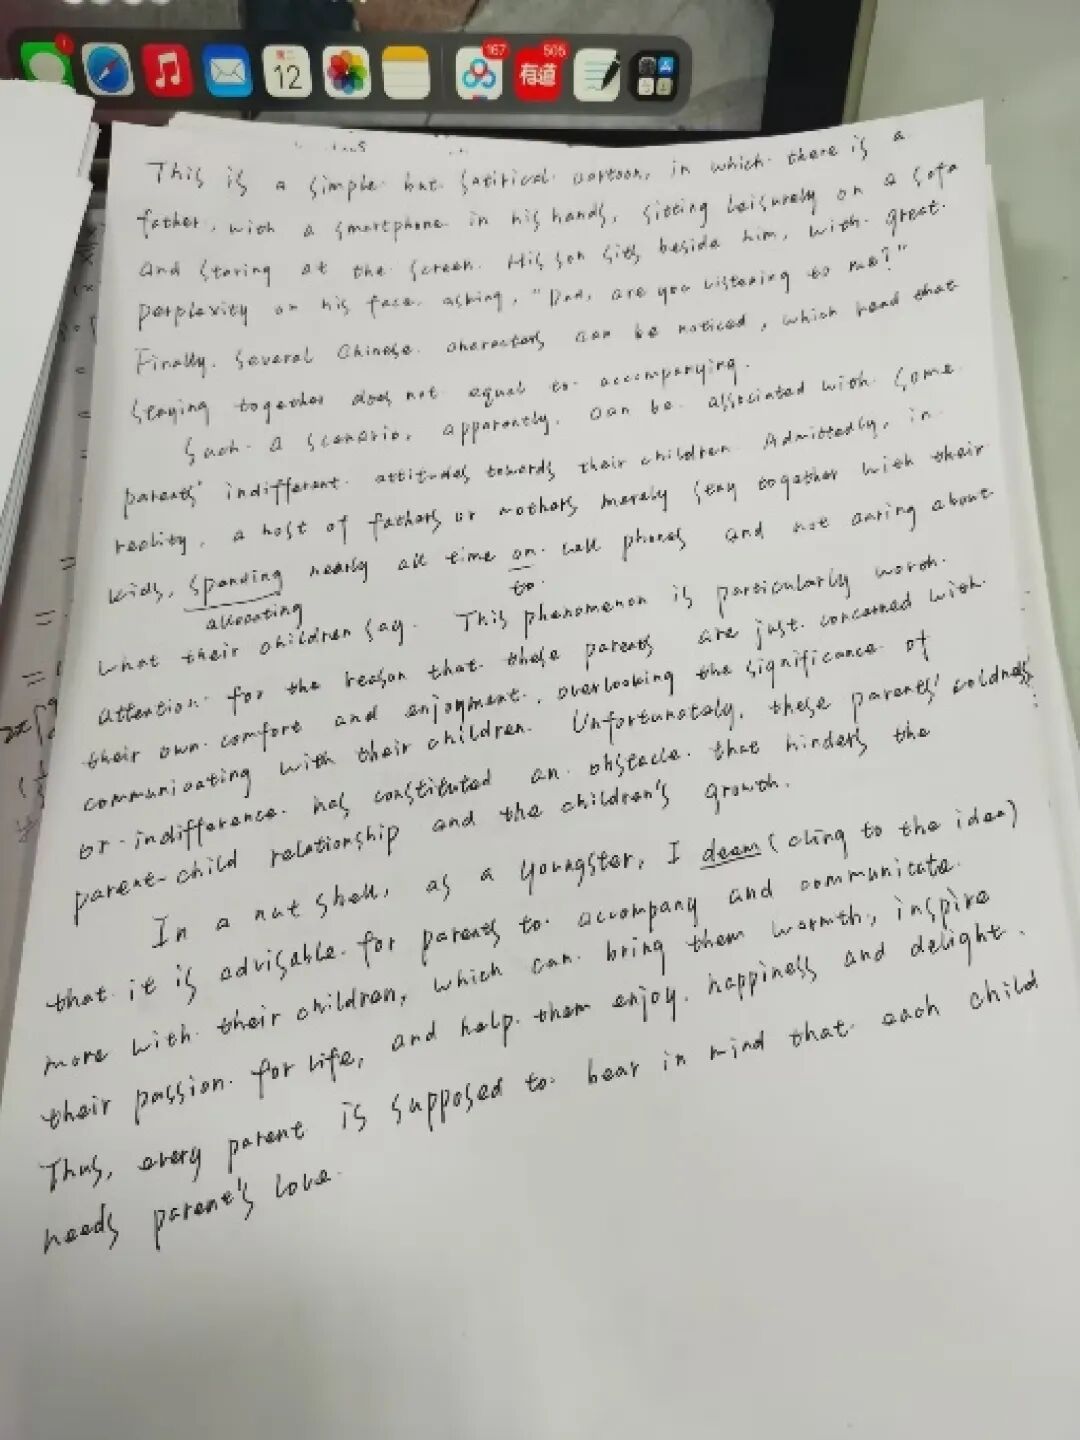 1
周二
12
167
505
有道
This is a simple but satirical cartoon, in which there is a
father, with a smartphone in his hands, sitting leisurely on a sofa
and staring at the screen. His son sits beside him, with great
perplexity on his face, asking, "Dad, are you listening to me?"
Finally, several Chinese characters can be noticed, which read that
staying together does not equal to accompanying.
Such a scenario, apparently, can be associated with some
parents' indifferent attitudes towards their children. Admittedly, in
reality, a host of fathers or mothers merely stay together with their
kids, spending nearly all time on cell phones and not caring about
allocating to
what their children say. This phenomenon is particularly worth
attention for the reason that these parents are just concerned with
their own comfort and enjoyment, overlooking the significance of
communicating with their children. Unfortunately, these parents' coldness
or indifference has constituted an obstacle that hinders the
parent-child relationship and the children's growth.
In a nut shell, as a youngster, I deem (cling to the idea)
that it is advisable for parents to accompany and communicate
more with their children, which can bring them warmth, inspire
their passion for life, and help them enjoy happiness and delight.
Thus, every parent is supposed to bear in mind that each child
needs parent's love.